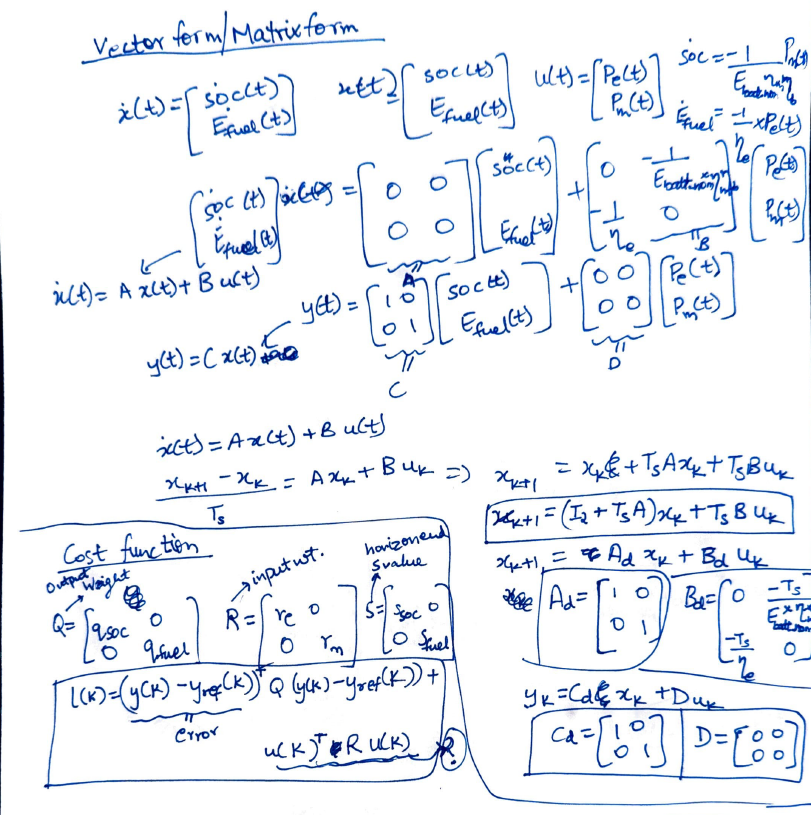 Vector form/Matrix form
ẋ(t) = [ṡoc(t); Ė_fuel(t)]  x(t) = [soc(t); E_fuel(t)]  u(t) = [P_e(t); P_m(t)]
ṡoc = -1/(E_batt.nom η_m η_b) P_m(t)
Ė_fuel = -1/η_e × P_e(t)
[ṡoc(t); Ė_fuel(t)] = [0 0; 0 0] [soc(t); E_fuel(t)] + [0 -1/(E_batt.nom × η_m η_b); -1/η_e 0] [P_e(t); P_m(t)]
A
B
ẋ(t) = A x(t) + B u(t)
y(t) = [1 0; 0 1] [soc(t); E_fuel(t)] + [0 0; 0 0] [P_e(t); P_m(t)]
y(t) = C x(t)
C
D
ẋ(t) = A x(t) + B u(t)
(x_k+1 - x_k)/T_s = A x_k + B u_k => x_k+1 = x_k + T_s A x_k + T_s B u_k
x_k+1 = (I_2 + T_s A) x_k + T_s B u_k
x_k+1 = A_d x_k + B_d u_k
A_d = [1 0; 0 1]  B_d = [0 -T_s/(E_batt.nom × η; -T_s/η_e 0]
y_k = C_d x_k + D u_k
C_d = [1 0; 0 1]  D = [0 0; 0 0]
Cost function
output weight
input wt.
horizon end
s value
Q = [q_soc 0; 0 q_fuel]  R = [r_e 0; 0 r_m]  S = [s_soc 0; 0 s_fuel]
l(k) = (y(k) - y_ref(k))^T Q (y(k) - y_ref(k)) +
error
u(k)^T R u(k)
?